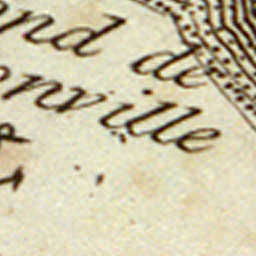 nd de
onville